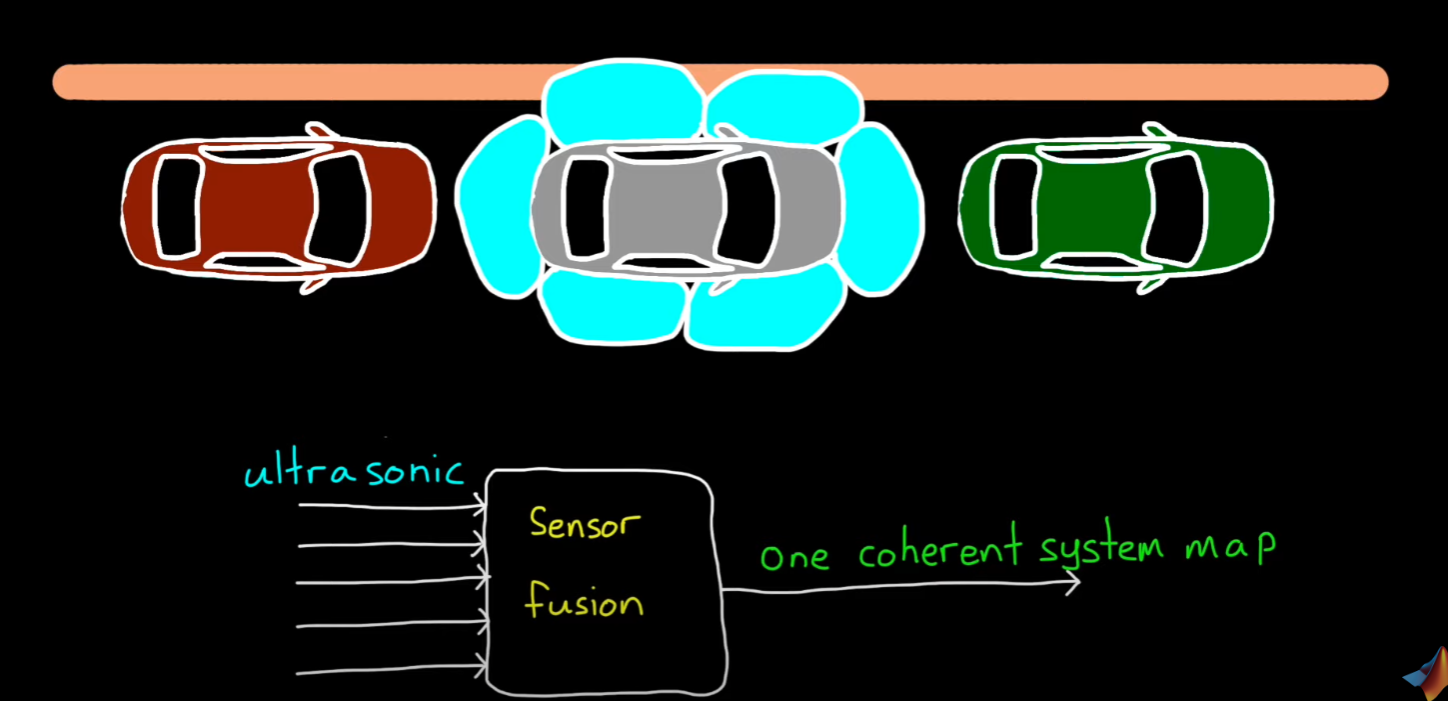 ultrasonic
Sensor
fusion
one coherent system map